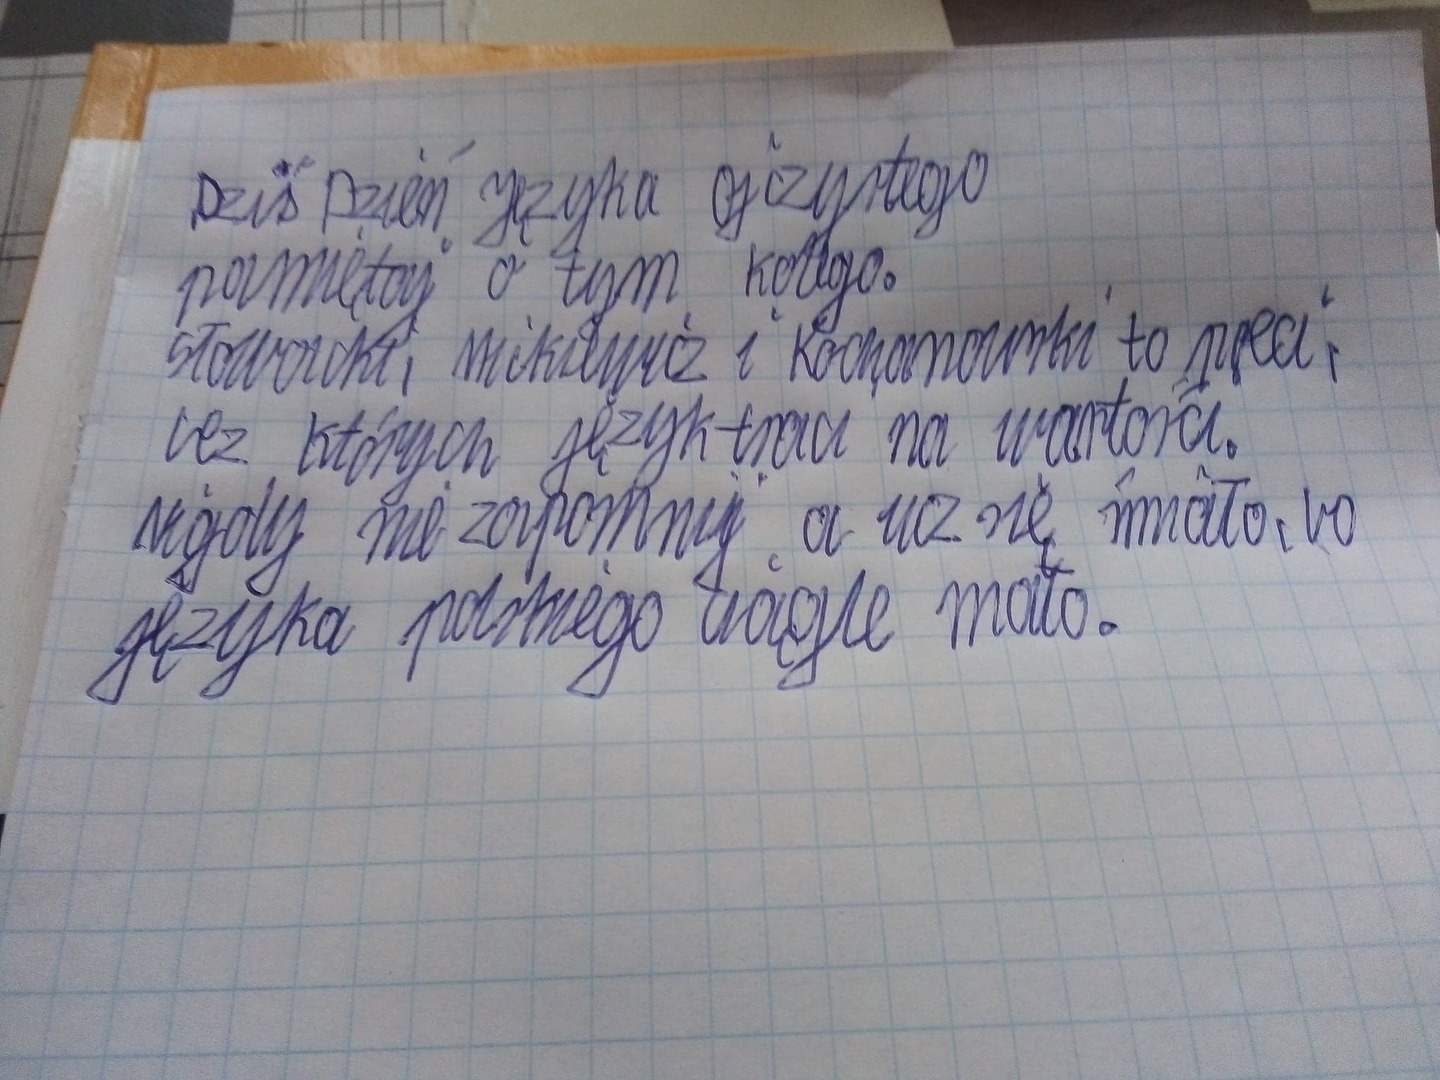 Dziś Dzień języka ojczystego
pamiętaj o tym kolego.
Słowacki, Mickiewicz i Kochanowski to poeci,
bez których język traci na wartości.
Nigdy nie zapomnij a ucz się śmiało, bo
języka polskiego ciągle mało.